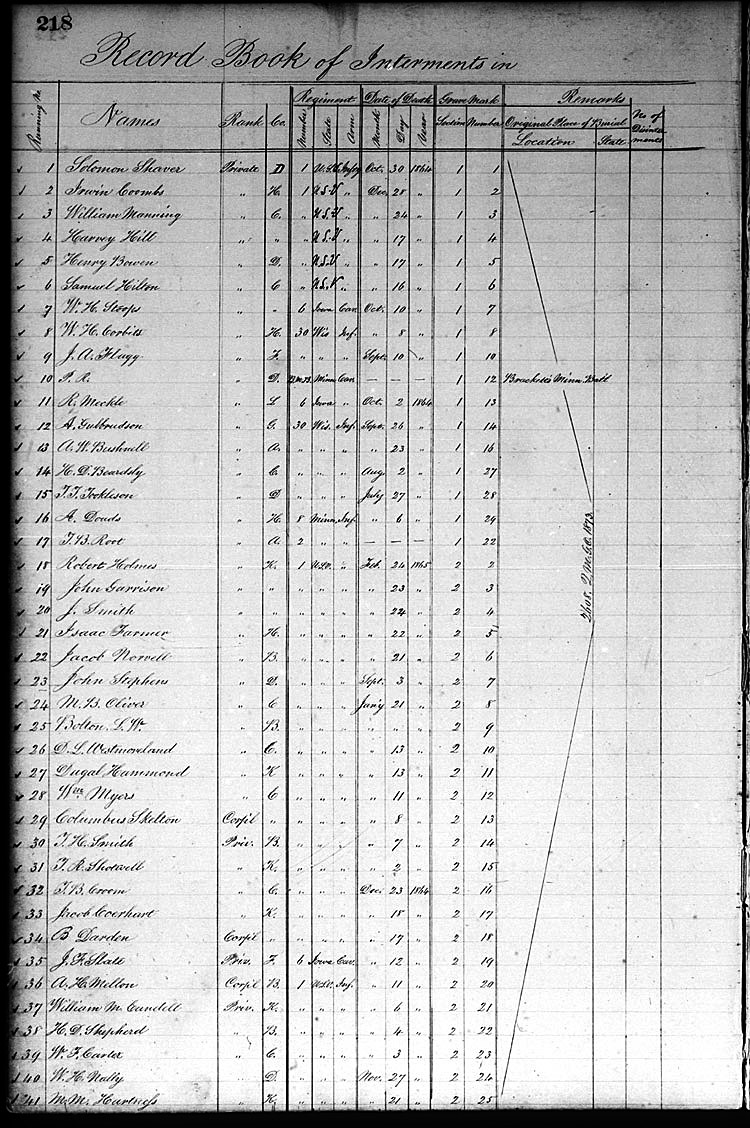 218
Record Book of Interments in
Running No. Names Rank Co. Regiment Date of Death Grave Mark Remarks
Number State Arm Month Day Year Section Number Original Place of Burial No of Disinterments
Location State
1 Solomon Shaver Private D 1 U.S.V. Infy Oct. 30 1864 1 1
2 Irwin Coombs " H. 1 U.S.V " Dec. 28 " 1 2
3 William Manning " C. " U.S.V " " 24 " 1 3
4 Harvey Hill " " " U.S.V " " 17 " 1 4
5 Henry Bowen " D. " U.S.V " " 17 " 1 5
6 Samuel Hilton " C " U.S.V " " 16 " 1 6
7 W. H. Stoops " " 6 Iowa Cav. Oct. 10 " 1 7
8 W. H. Corbitt " H. 30 Wis. Inf. " 8 " 1 8
9 J. A. Flagg " F. " " " Sept. 10 " 1 10
10 P. R. " D. Minn Cav. — — — 1 12 Bracketts Minn. Batt
11 R. Meckle " L 6 Iowa " Oct. 2 1864 1 13
12 A. Gulbrudson " G. 30 Wis. Inf. Sept. 26 " 1 14
13 A. W. Bushnell " A. " " " " 23 " 1 16
14 H. D. Beardsly " C. " " " Aug. 2 " 1 27
15 T. T. Tockleson " D " " " July 27 " 1 28
16 A. Douds " H. 8 Minn. Inf. " 6 " 1 29
17 T. B. Root " A. 2 " " — — — 1 22
18 Robert Holmes " K. 1 U.S.V. " Feb. 24 1865 2 2
19 John Garrison " " " " " " 23 " 2 3
20 J. Smith " " " " " " 22 " 2 4
21 Isaac Farmer " H. " " " " 22 " 2 5
22 Jacob Norvell " B. " " " " 21 " 2 6
23 John Stephens " D. " " " Sept. 3 " 2 7
24 M. B. Oliver " C " " " Jan'y 21 " 2 8
25 Bolton. L. W. " B. " " " " " " 2 9
26 D. L. Westmoreland " C. " " " " 13 " 2 10
27 Dugal Hammond " K " " " " 13 " 2 11
28 Wm Myers " C " " " " 11 " 2 12
29 Columbus Skelton Corpl " " " " " 8 " 2 13
30 T. H. Smith Priv. B. " " " " 7 " 2 14
31 T. R. Shotwell " K. " " " " 2 " 2 15
32 T. B. Croom " C. " " " Dec. 23 1864 2 16
33 Jacob Everhart " K. " " " " 18 " 2 17
34 B. Darden Corpl " " " " " 17 " 2 18
35 J. F. Statt Priv. F. 6 Iowa Cav. " 12 " 2 19
36 A. H. Melton Corpl B. 1 U.S.V. Inf. " 11 " 2 20
37 William M. Cundell Priv. K. " " " " 6 " 2 21
38 H. D. Shepherd " B. " " " " 4 " 2 22
39 W. F. Carter " C. " " " " 3 " 2 23
40 W. H. Nally " D. " " " Nov. 27 " 2 24
41 M. M. Hartness " K. " " " " 21 " 2 25
2405. Q.M.G.O. 1873.